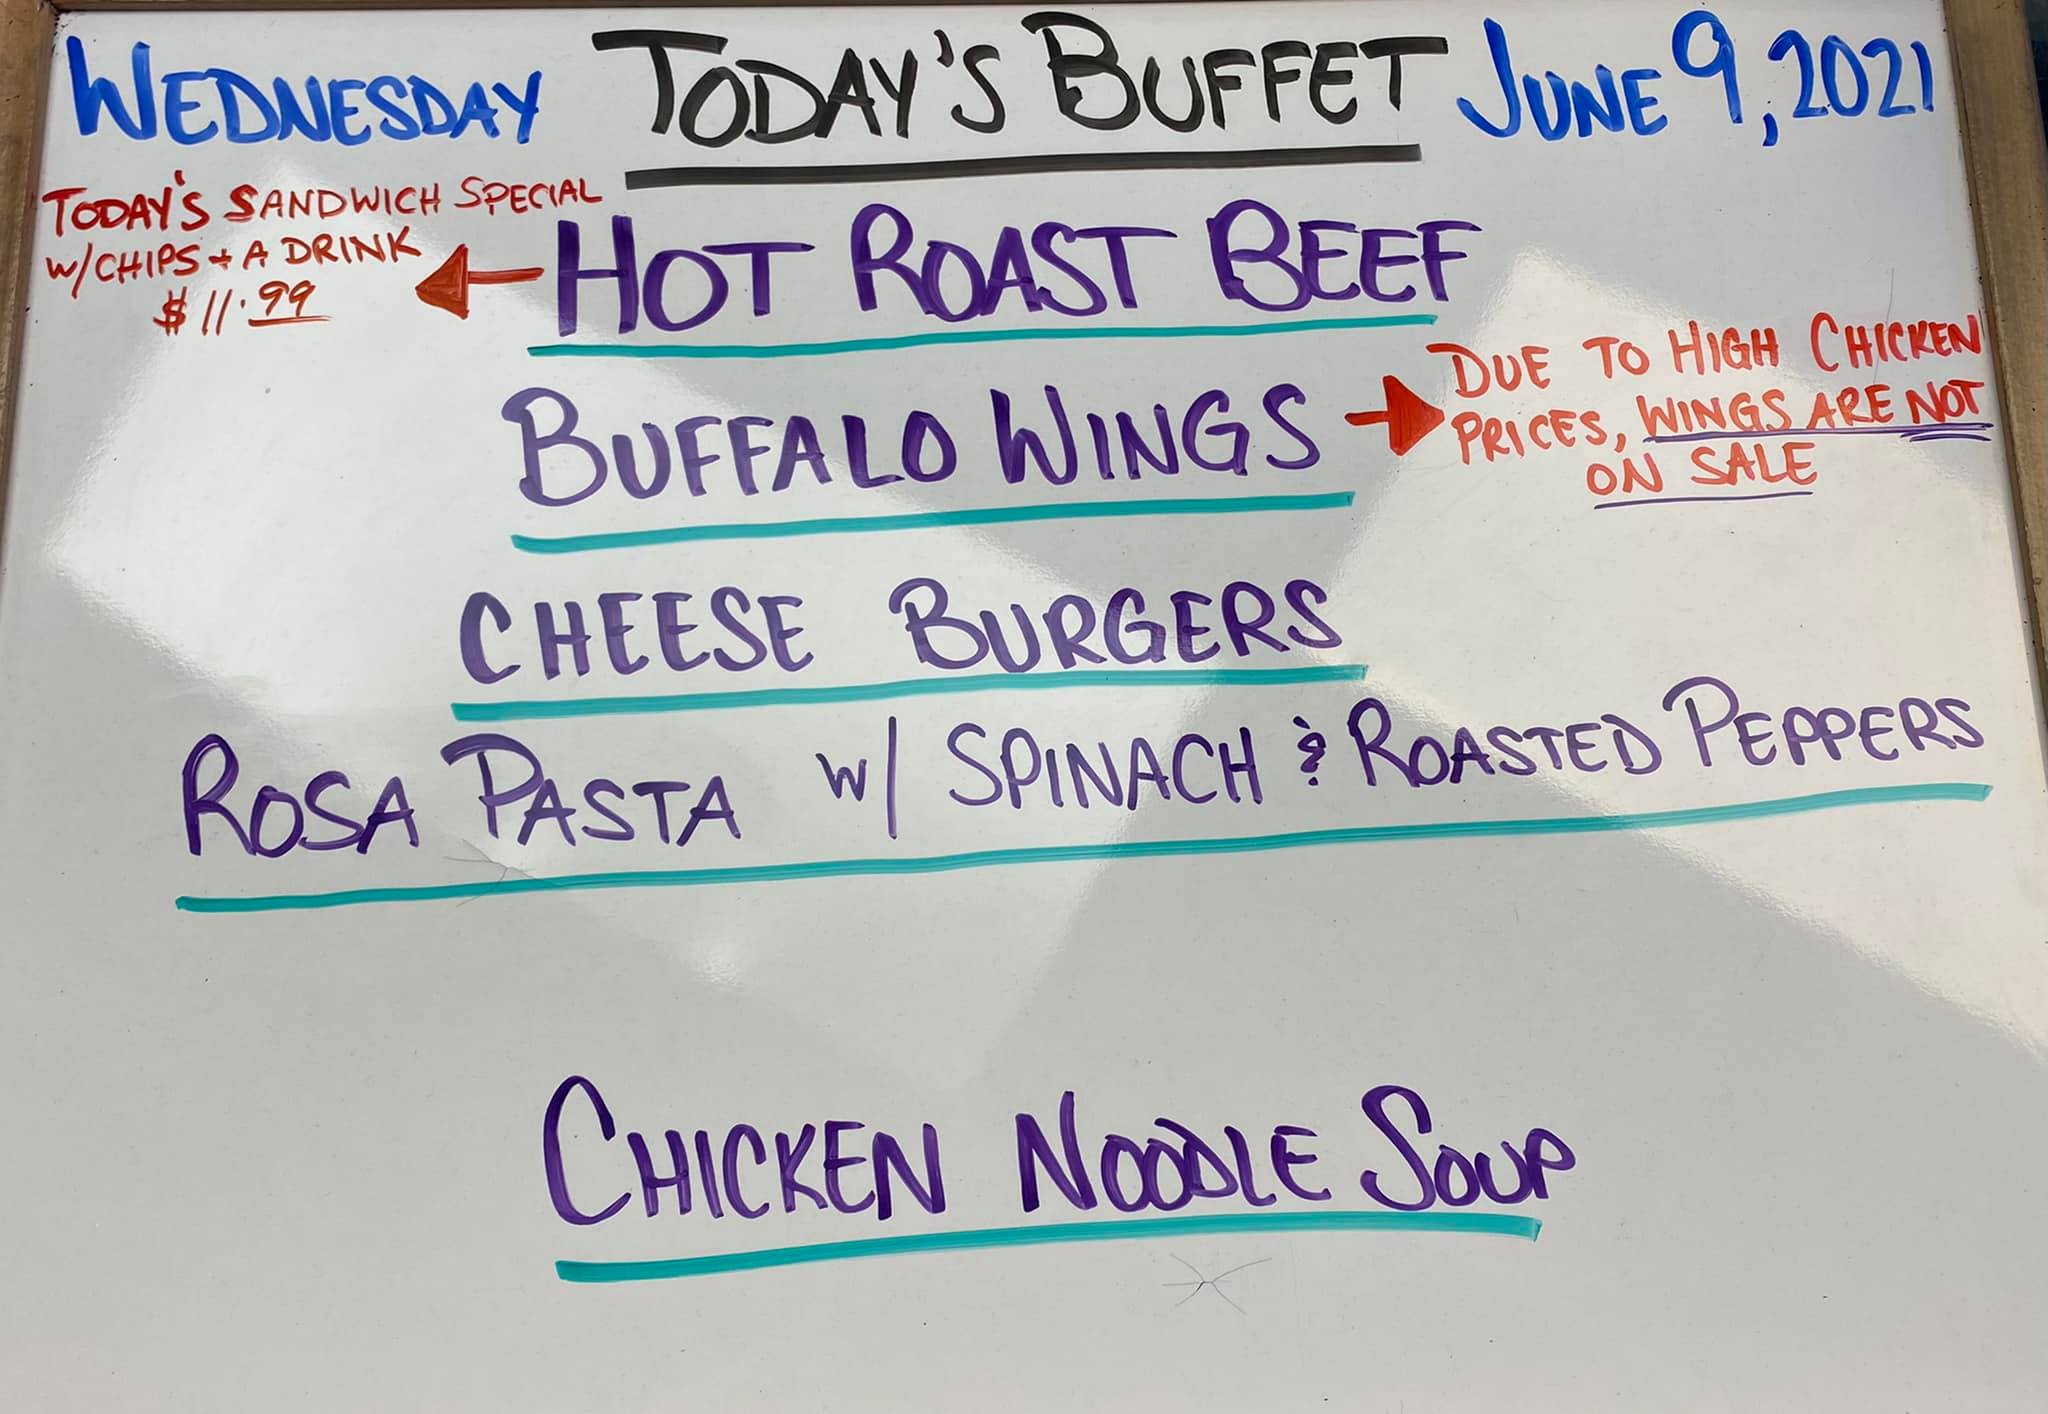 WEDNESDAY TODAY'S BUFFET JUNE 9, 2021
TODAY'S SANDWICH SPECIAL
W/CHIPS + A DRINK
$11.99
HOT ROAST BEEF
BUFFALO WINGS
DUE TO HIGH CHICKEN
PRICES, WINGS ARE NOT
ON SALE
CHEESE BURGERS
ROSA PASTA W/ SPINACH & ROASTED PEPPERS
CHICKEN NOODLE SOUP